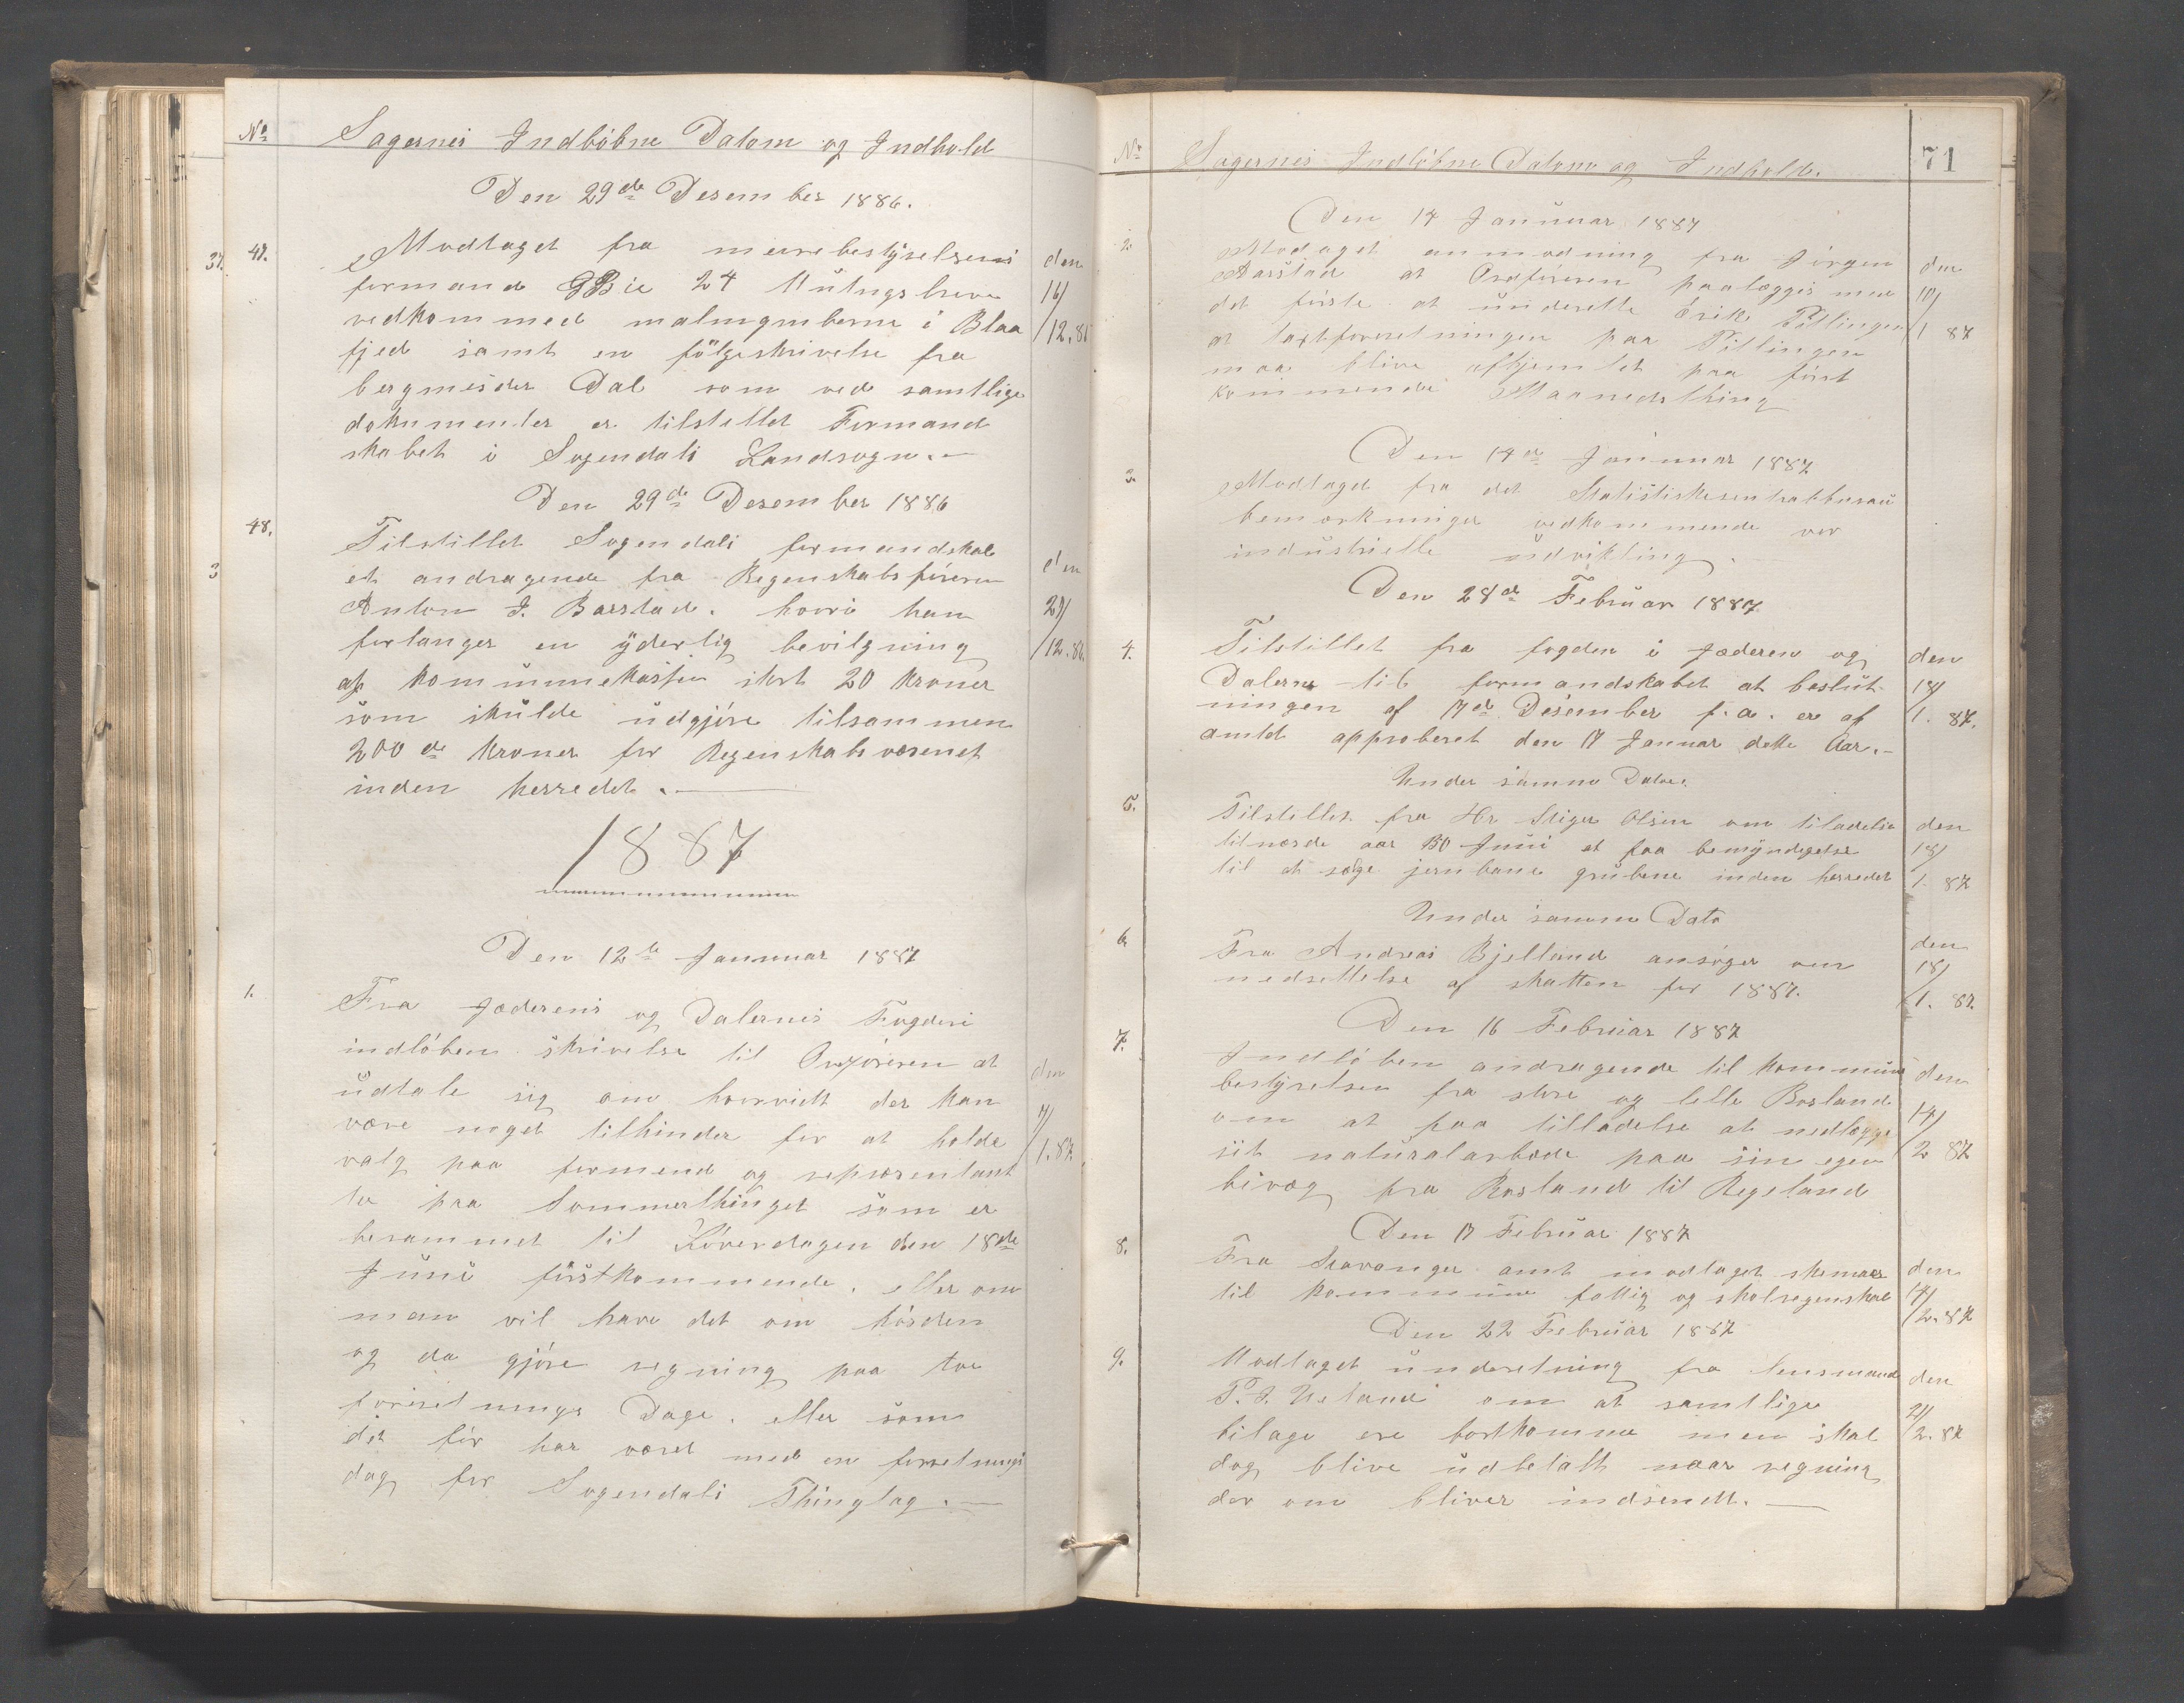 No. Sagernes Indløbne Datom og Indhold
Den 29de Desember 1886.
47. Modtaget fra
formand GBie 24 Mutingsbreve
vedkommed malmgruberne i Blaa
fjed samt en følgeskrivelse fra
bergmester Dal som ved samtlige
dokumenter er tilstillet Formand
skabet i Sogendals Landsogn.
den
16/
/12.86
Den 29de Desember 1886
48. Tilstillet Sogendals formandskab
et andragende fra Regenskabsføreren
Anton J. Barstad. hvori han
forlanger en yderlig bevilgning
af kommunekassen stort 20 kroner
som skulde udgjøre tilsammen
200de kroner for Regenskabsvæsenet
inden herredet.
den
29/
/12.86.
1887
Den 12te Januuar 1887
1. Fra Jæderens og Dalernes Fogderi
indløben skrivelse til Orføreren at
udtale sig om hvorvidt der kan
være noget tilhinder for at holde
valg paa formend og repræsentant
er paa Sommerthinget som er
berammet til Løverdagen den 18de
Juni førstkommende. eller om
man vil have det om høsten
og da gjøre regning paa to
foretnings Dage. eller som
det før har været med en forretnings
dag for Sogendals Thinglag.
den
7/
/1.87.
71
No. Sagernes Indløbne Datom og Indhold.
Den 14 Januuar 1887
2. Modtaget anmodning fra Jørgen
Aarstad at Ordføreren paalægges med
det første at underette Erik Pitlingen
at taxtforretningen paa Pitlingen
maa blive afhjemlet paa først
kommende Maanedsthing
den
10/
/1 87
Den 14de Januuar 1887
3. Modtaget fra det Statistiskesentralbureau
bemærkninger vedkommende vor
industrielle udvikling.
Den 28de Februar 1887
4. Tilstillet fra fogden i Jæderen og
Dalerne til formandskabet at beslut
ningen af 17de Desember f.a. er af
amtet approberet den 17 Januar dette Aar.
den
18/
1. 87.
Under samme Dato.
5. Tilstillet fra Hr Stiger Olsen om tiladelse
tilnæste aar 30 Juni at faa bemyndigelse
til at søge jernbane grubene inden herredet
den
18/
/1. 87
Under samme Dato
6. Fra Andreas Bjelland ansøger om
nedsettelse af skatten for 1887.
den
18/
/1. 87.
Den 16 Februar 1887
7. Indløben andragende til kommune
bestyrelsen fra store og lille Rosland
om at faa tilladelse at nedlægge
sit naturalarbede paa sin egen
bivæg fra Rosland til Regeland
den
14/
/2 87
Den 17 Februar 1887
8. Fra Stavanger amt modtaget skemaer
til kommune fattig og skolregenskab
den
14/
/2. 87
Den 22 Februar 1887
9. Modtaget underetning fra lensmand
T. J. Ueland om at samtlige
bilage ere bortkomne men skal
dog blive udbetalt naar regning
der om bliver indsendt.
den
21/
/2. 87